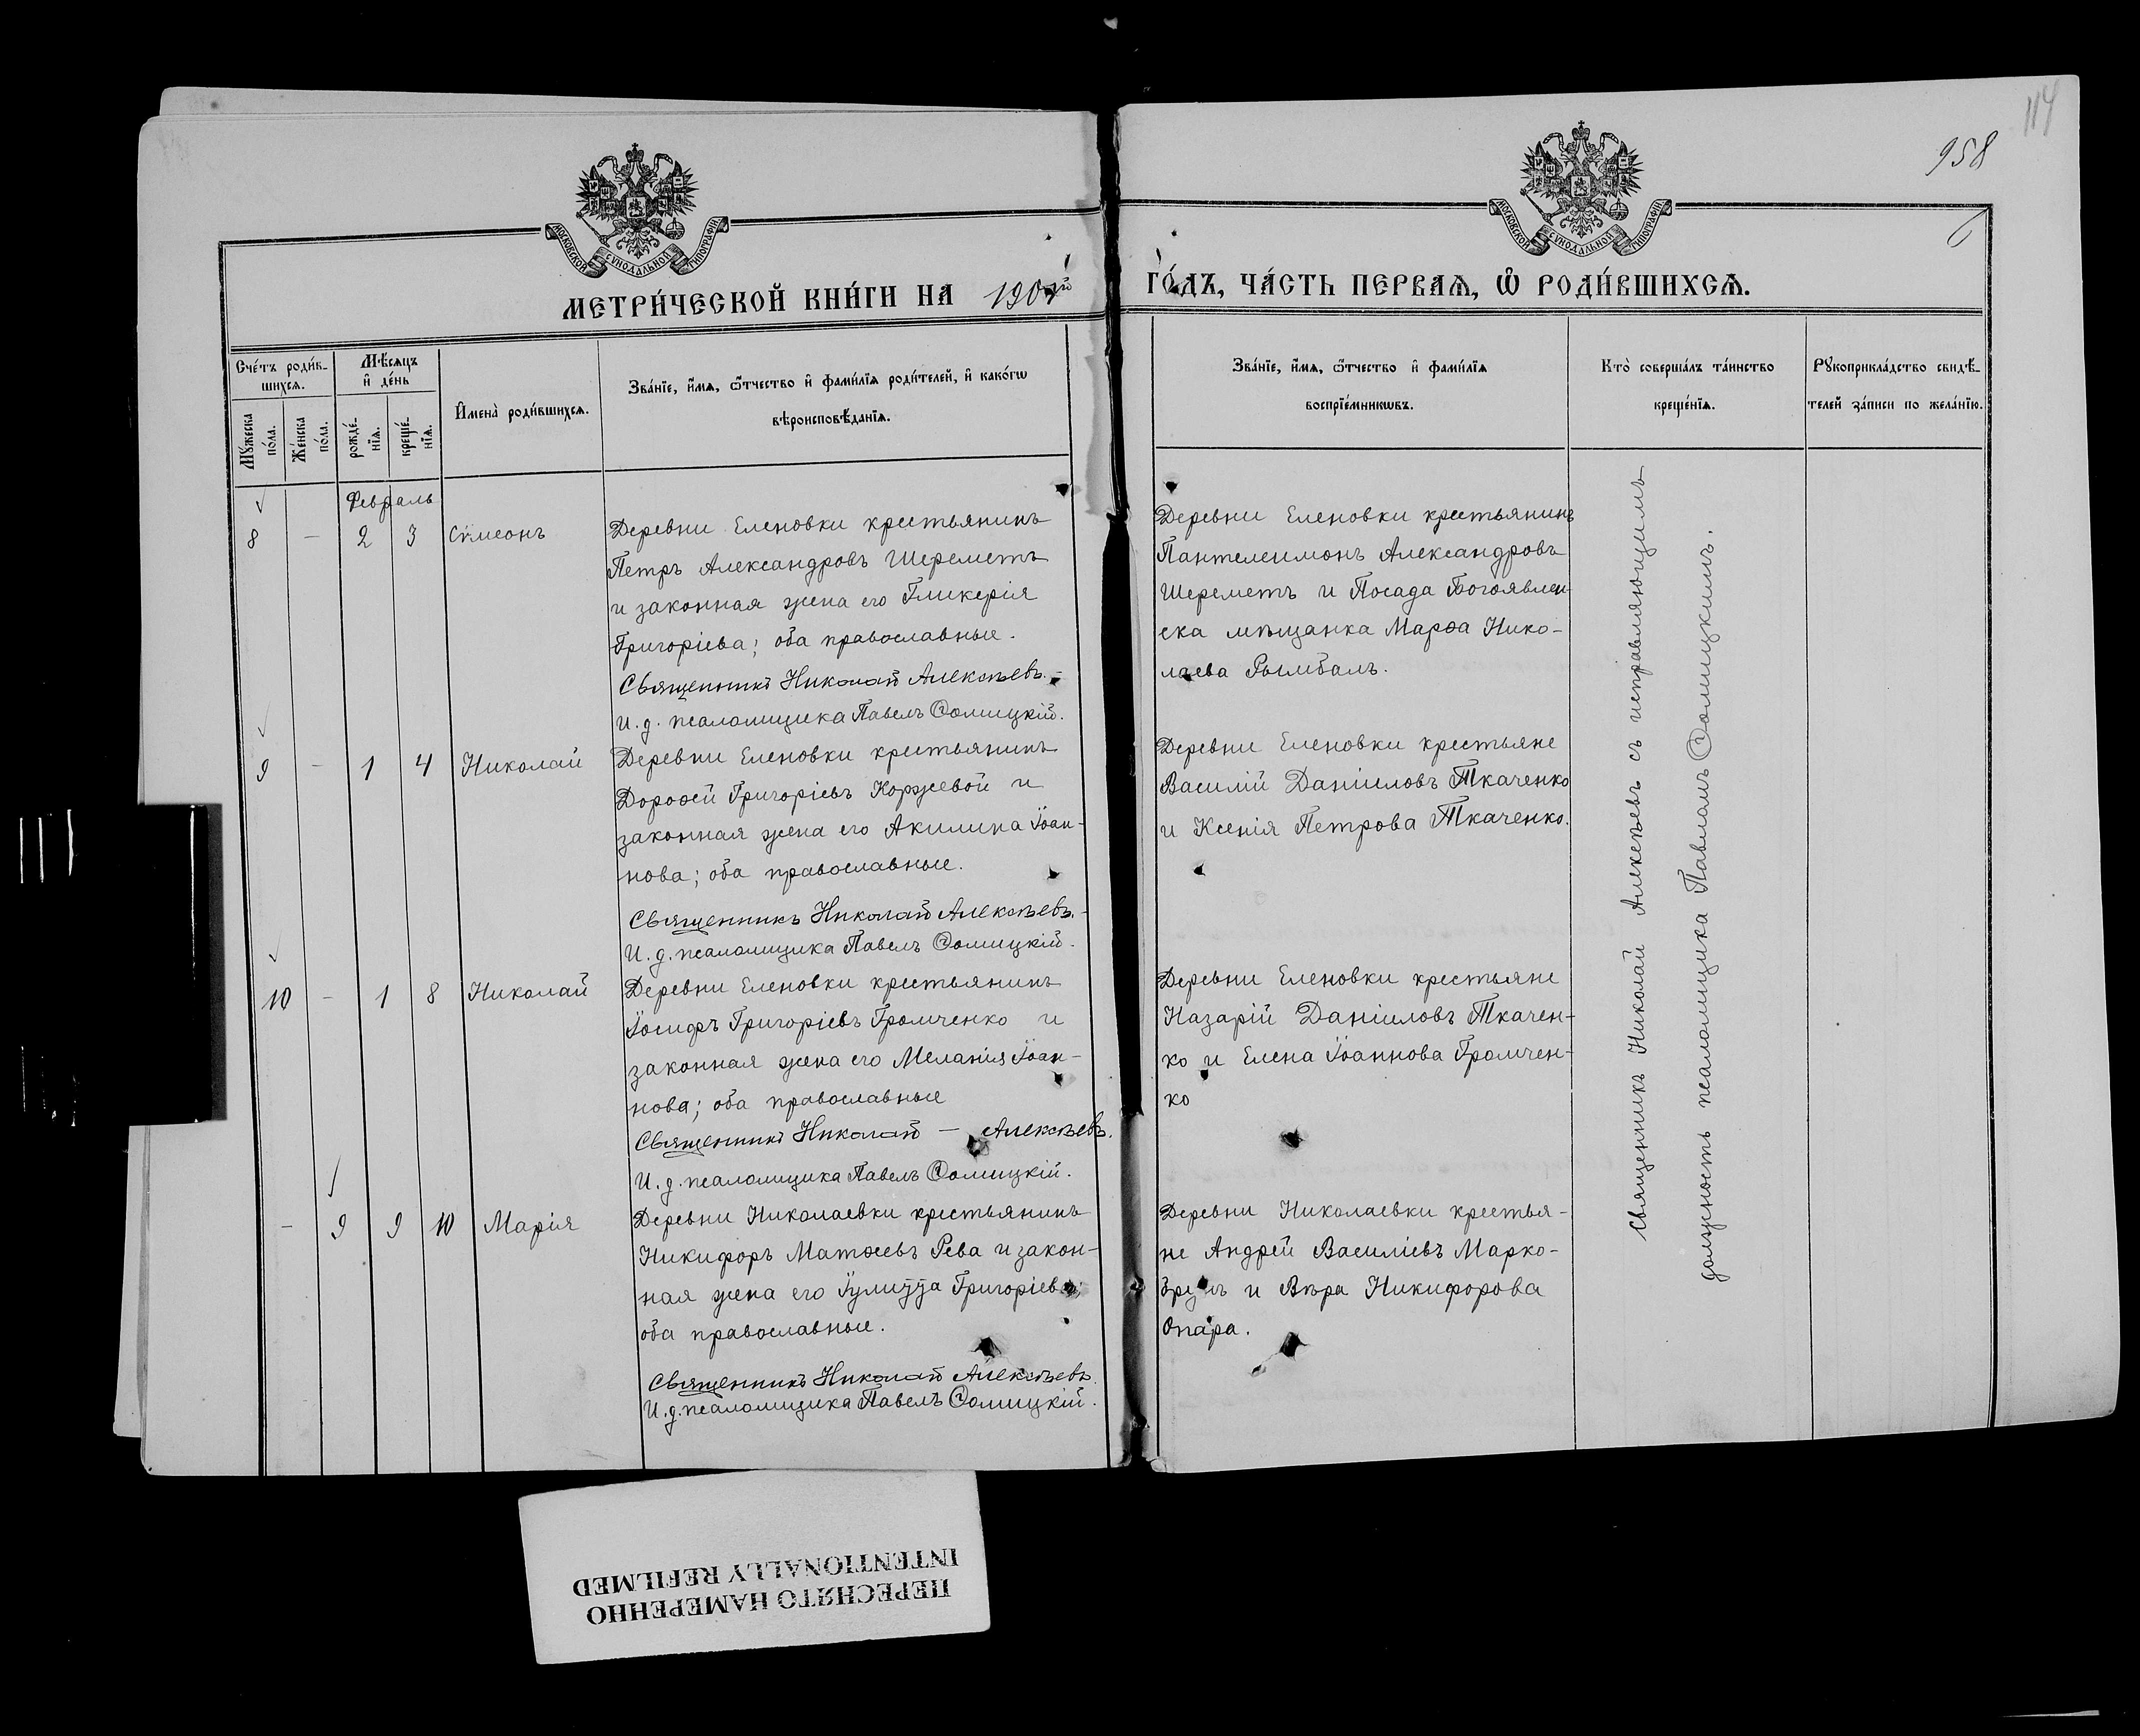 114
958
МОСКОВСКОЙ СѴНОДАЛЬНОЙ ТИПОГРАФІИ
МОСКОВСКОЙ СѴНОДАЛЬНОЙ ТИПОГРАФІИ
МЕТРИ́ЧЕСКОЙ КНИ́ГИ НА
ГО́ДЪ, ЧА́СТЬ ПЕРВАѦ, Ѽ РОДИ́ВШИХСѦ.
Сче́тъ роди́в-
шихсѧ.
Мꙋжеска
по́ла.
Же́нска
по́ла.
Мѣ́сѧцъ
и҆ де́нь
рожде́-
нїѧ.
креще́-
нїѧ.
И҆мена̀ роди́вшихсѧ.
Зва́нїе, и҆́мѧ, ѻ҆́тчество и҆ фами́лїѧ роди́телей, и҆ како́гѡ
вѣроисповѣ́данїѧ.
Зва́нїе, и҆́мѧ, ѻ҆́тчество и҆ фами́лїѧ
воспрїе́мникѡвъ.
Кто̀ соверша́лъ та́инство
креще́нїѧ.
Рꙋкоприкла́дство свидѣ́-
телей за́писи по жела́нїю.
Февраль
8 - 2 3 Сѵмеонъ
Деревни Еленовки крестьянинъ
Петръ Александровъ Шереметъ
и законная жена его Гликерія
Григоріева; оба православные.
Священникъ Николай Алексѣевъ.-
И. д. псаломщика Павелъ Ѳомицкій.
Деревни Еленовки крестьянинъ
Пантелеимонъ Александровъ
Шереметъ и Посада Богоявлен-
ска мѣщанка Марѳа Нико-
лаева Рымбалъ.
9 - 1 4 Николай
Деревни Еленовки крестьянинъ
Дороѳей Григоріевъ Коржевой и
законная жена его Акилина Іоан-
нова; оба православные.
Священникъ Николай Алексѣевъ.-
И. д. псаломщика Павелъ Ѳомицкій.
Деревни Еленовки крестьяне
Василій Даніиловъ Ткаченко
и Ксенія Петрова Ткаченко.
10 - 1 8 Николай
Деревни Еленовки крестьянинъ
Іосифъ Григоріевъ Громченко и
законная жена его Меланія Іоан-
нова; оба православные
Священникъ Николай - Алексѣевъ.
И. д. псаломщика Павелъ Ѳомицкій.
Деревни Еленовки крестьяне
Назарій Даніиловъ Ткачен-
ко и Елена Іоаннова Громчен-
ко
- 9 9 10 Марія
Деревни Николаевки крестьянинъ
Никифоръ Матѳеевъ Рева и закон-
ная жена его Григоріева;
оба православные.
Священникъ Николай Алексѣевъ.
И. д. псаломщика Павелъ Ѳомицкій.
Деревни Николаевки крестья-
не Андрей Василіевъ
и Вѣра Никифорова
Опара.
Священникъ Николай Алексѣевъ съ исправляющимъ
должность псаломщика Павломъ Ѳомицкимъ.
ПЕРЕСНЯТО НАМЕРЕННО
INTENTIONALLY REFILMED